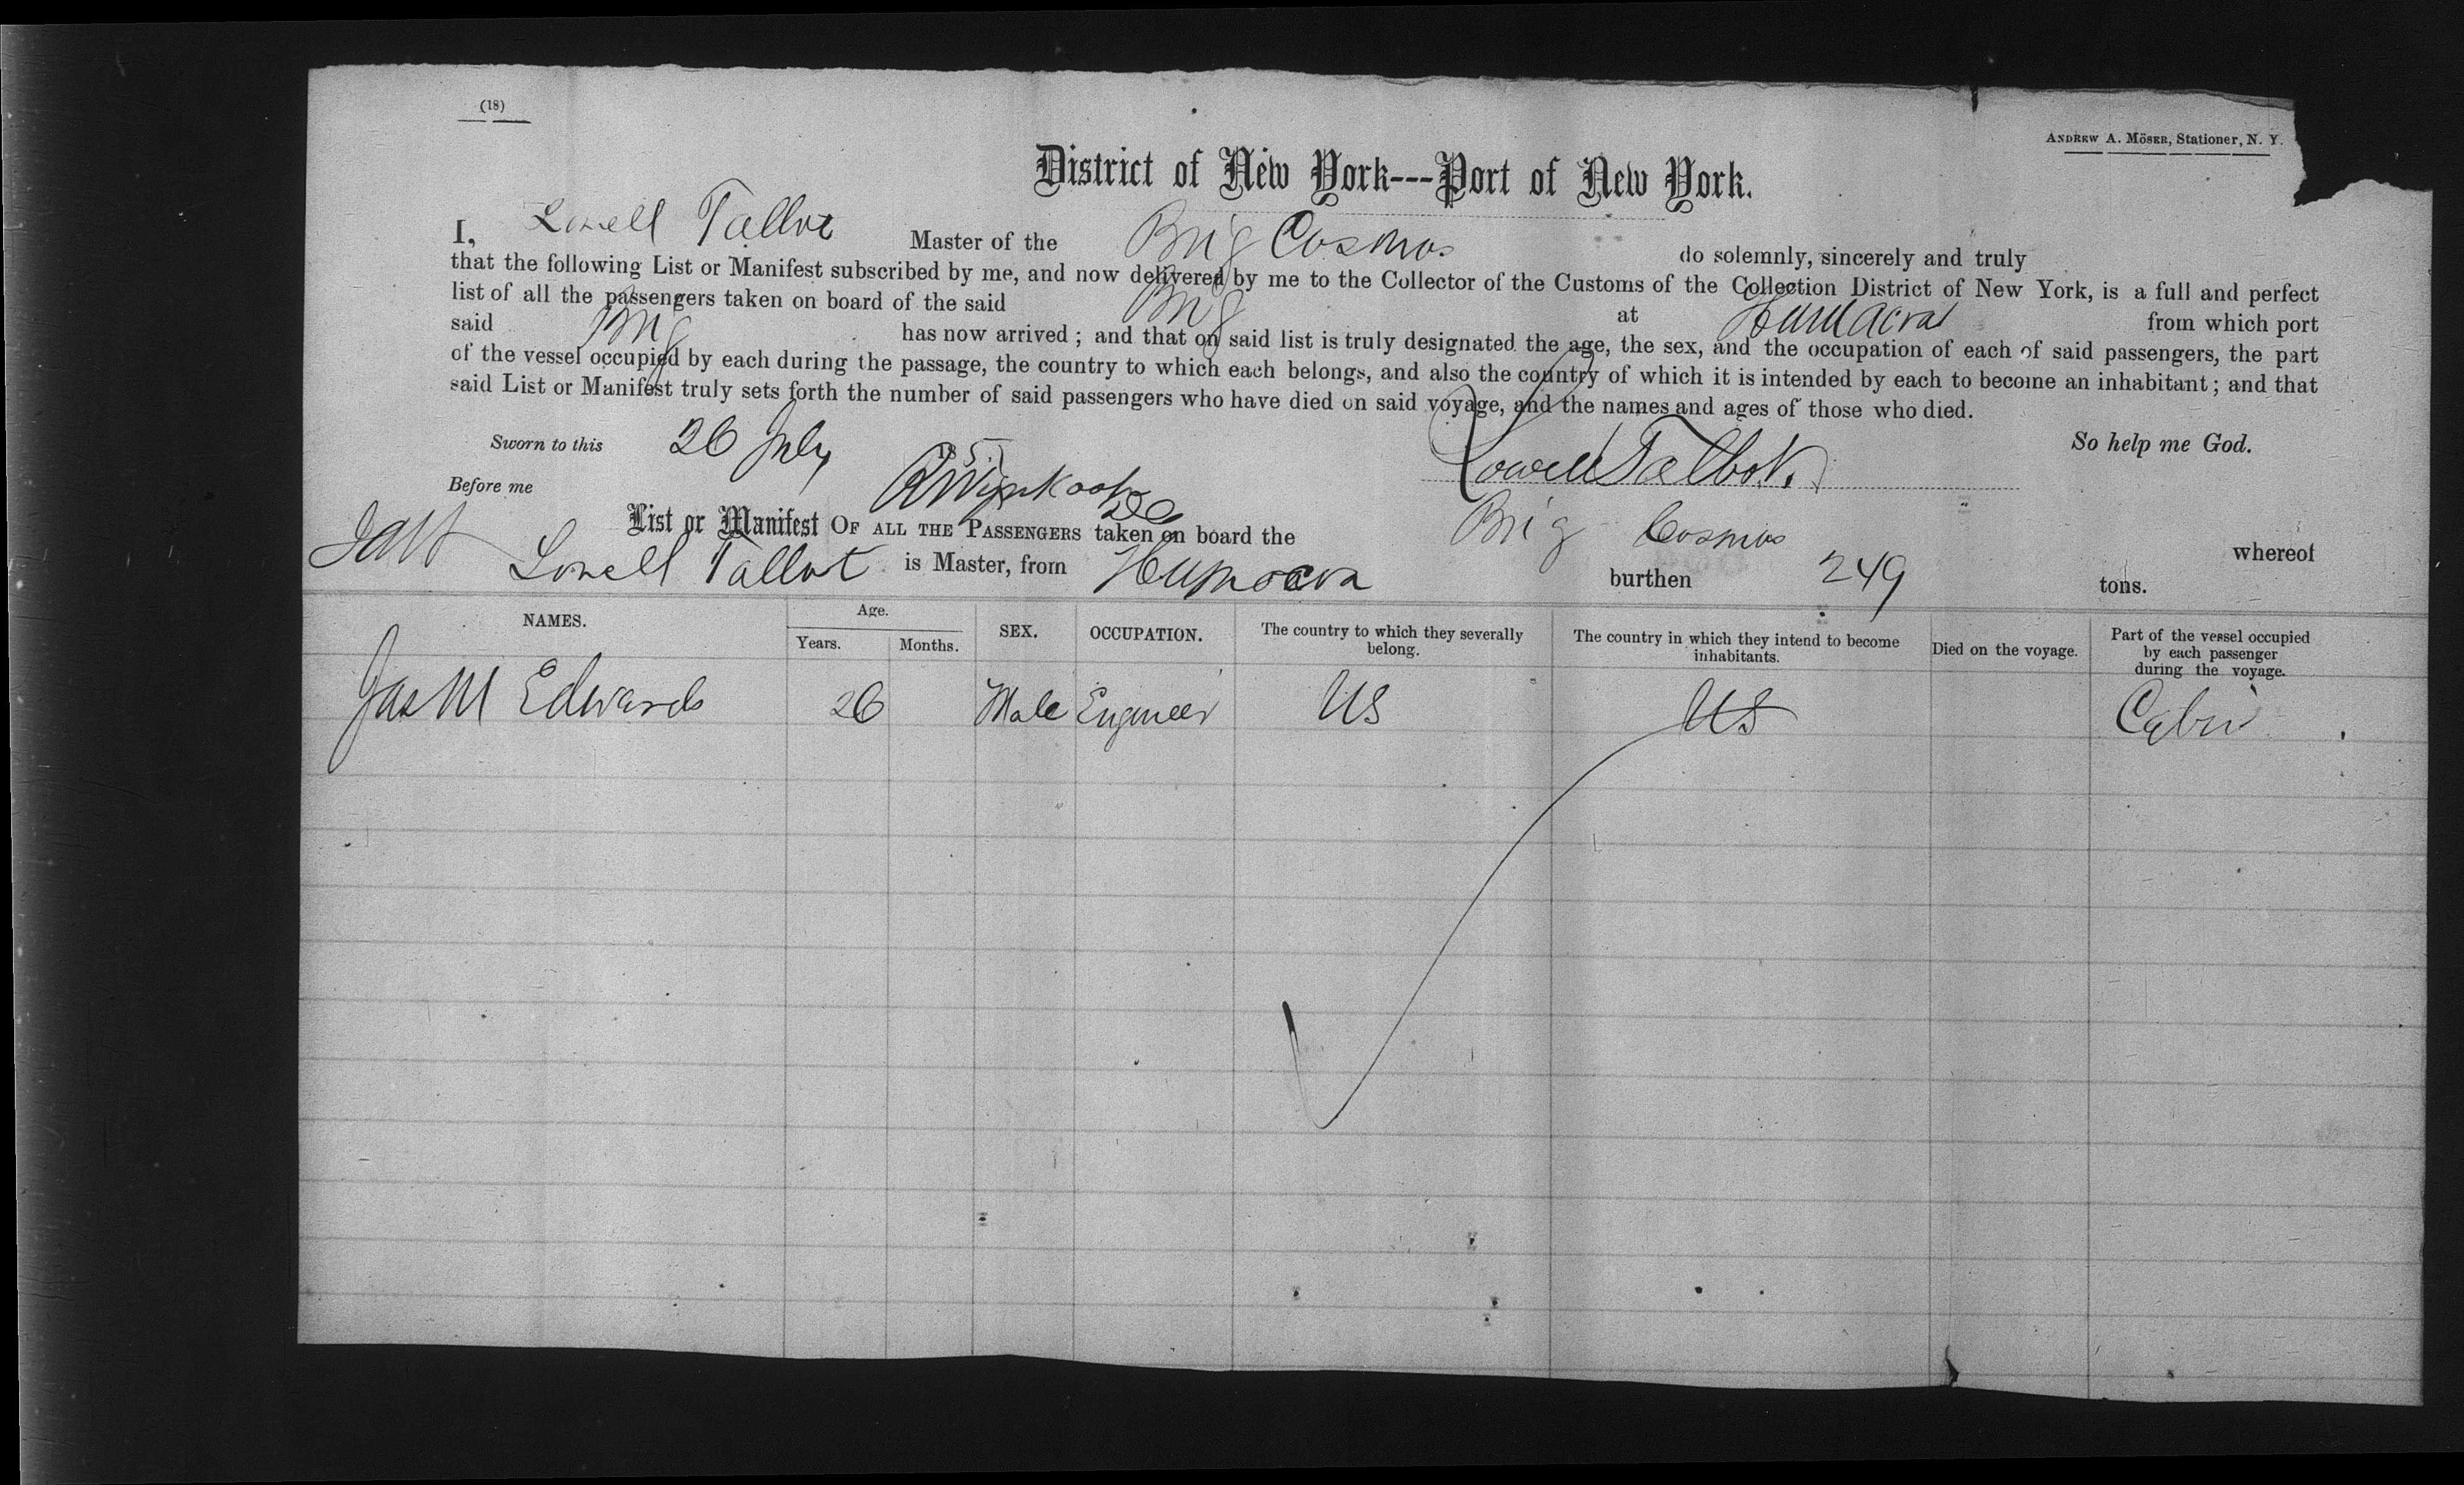 (18)
ANDREW A. MÖSER, Stationer, N. Y.
District of New York---Port of New York.
I, Lowell Talbot Master of the Brig Cosmos do solemnly, sincerely and truly
that the following List or Manifest subscribed by me, and now delivered by me to the Collector of the Customs of the Collection District of New York, is a full and perfect
list of all the passengers taken on board of the said Brig at Humacoa from which port
said Brig has now arrived; and that on said list is truly designated the age, the sex, and the occupation of each of said passengers, the part
of the vessel occupied by each during the passage, the country to which each belongs, and also the country of which it is intended by each to become an inhabitant; and that
said List or Manifest truly sets forth the number of said passengers who have died on said voyage, and the names and ages of those who died.
Sworn to this 26 July 185 Lowell Talbot. So help me God.
Before me RWynkoop
List or Manifest OF ALL THE PASSENGERS taken on board the Brig Cosmos whereof
Lowell Talbot is Master, from Humacoa burthen 249 tons.
NAMES. Age. Years. Months. SEX. OCCUPATION. The country to which they severally belong. The country in which they intend to become inhabitants. Died on the voyage. Part of the vessel occupied by each passenger during the voyage.
Jas M Edwards 26 Male Engineer US US Cabin